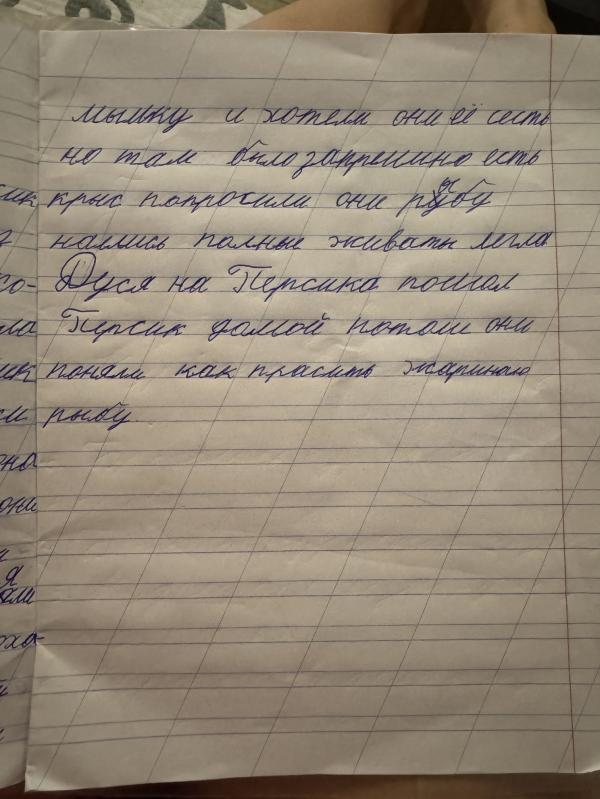 мышку и хотели они её сесть
но там было запрепино есть
сик крыс попросили они рыбу
нались полные живаты легла
со- Дуся на Персика пошол
ла Персик домой потом они
ик поняли как прасить жариную
си рыбу.
она
они
и
я
али
оха-
й
и